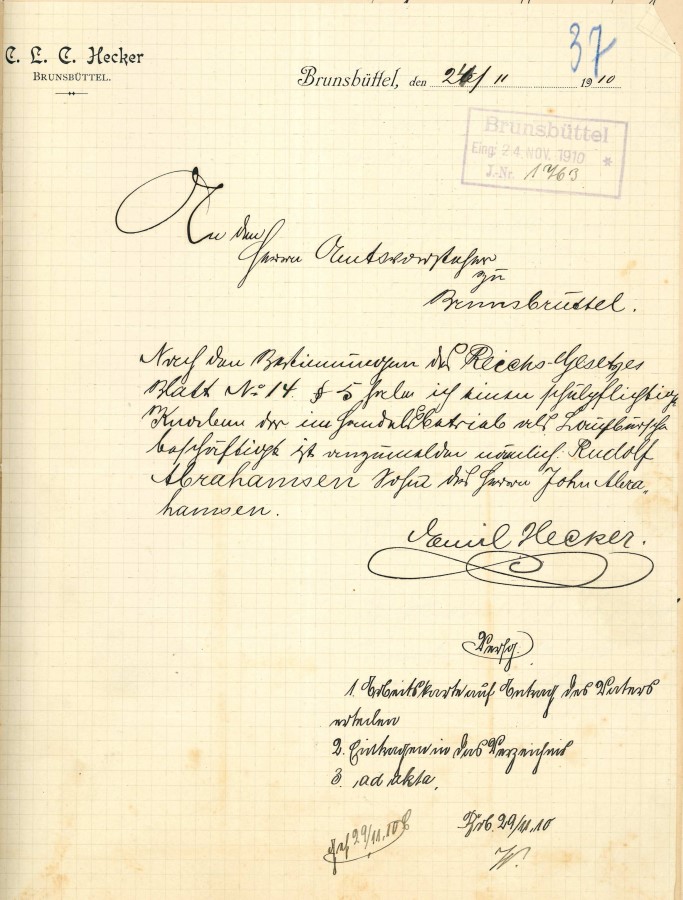 37
C. L. C. Hecker
BRUNSBÜTTEL.
Brunsbüttel, den 24/11 1910
Brunsbüttel
Eing. 24. NOV. 1910 *
J.-Nr. 1763
An den
Herrn Amtsvorsteher
zu
Brunsbüttel.
Nach den Bestimmungen des Reichs-Gesetzes
Blatt No 14. § 5 habe ich einen schulpflichtigen
Knaben der im Handelsbetrieb als Laufbursche
beschäftigt ist anzumelden nämlich. Rudolf
Abrahamsen Sohn des Herrn John Abra-
hamsen.
Emil Hecker.
Verfg.
1. Arbeitskarte auf Antrag des Vaters
erteilen
2. Eintragen in das Verzeichnis
3. ad akta.
Brb. 29/11.10
gef 29/11.10